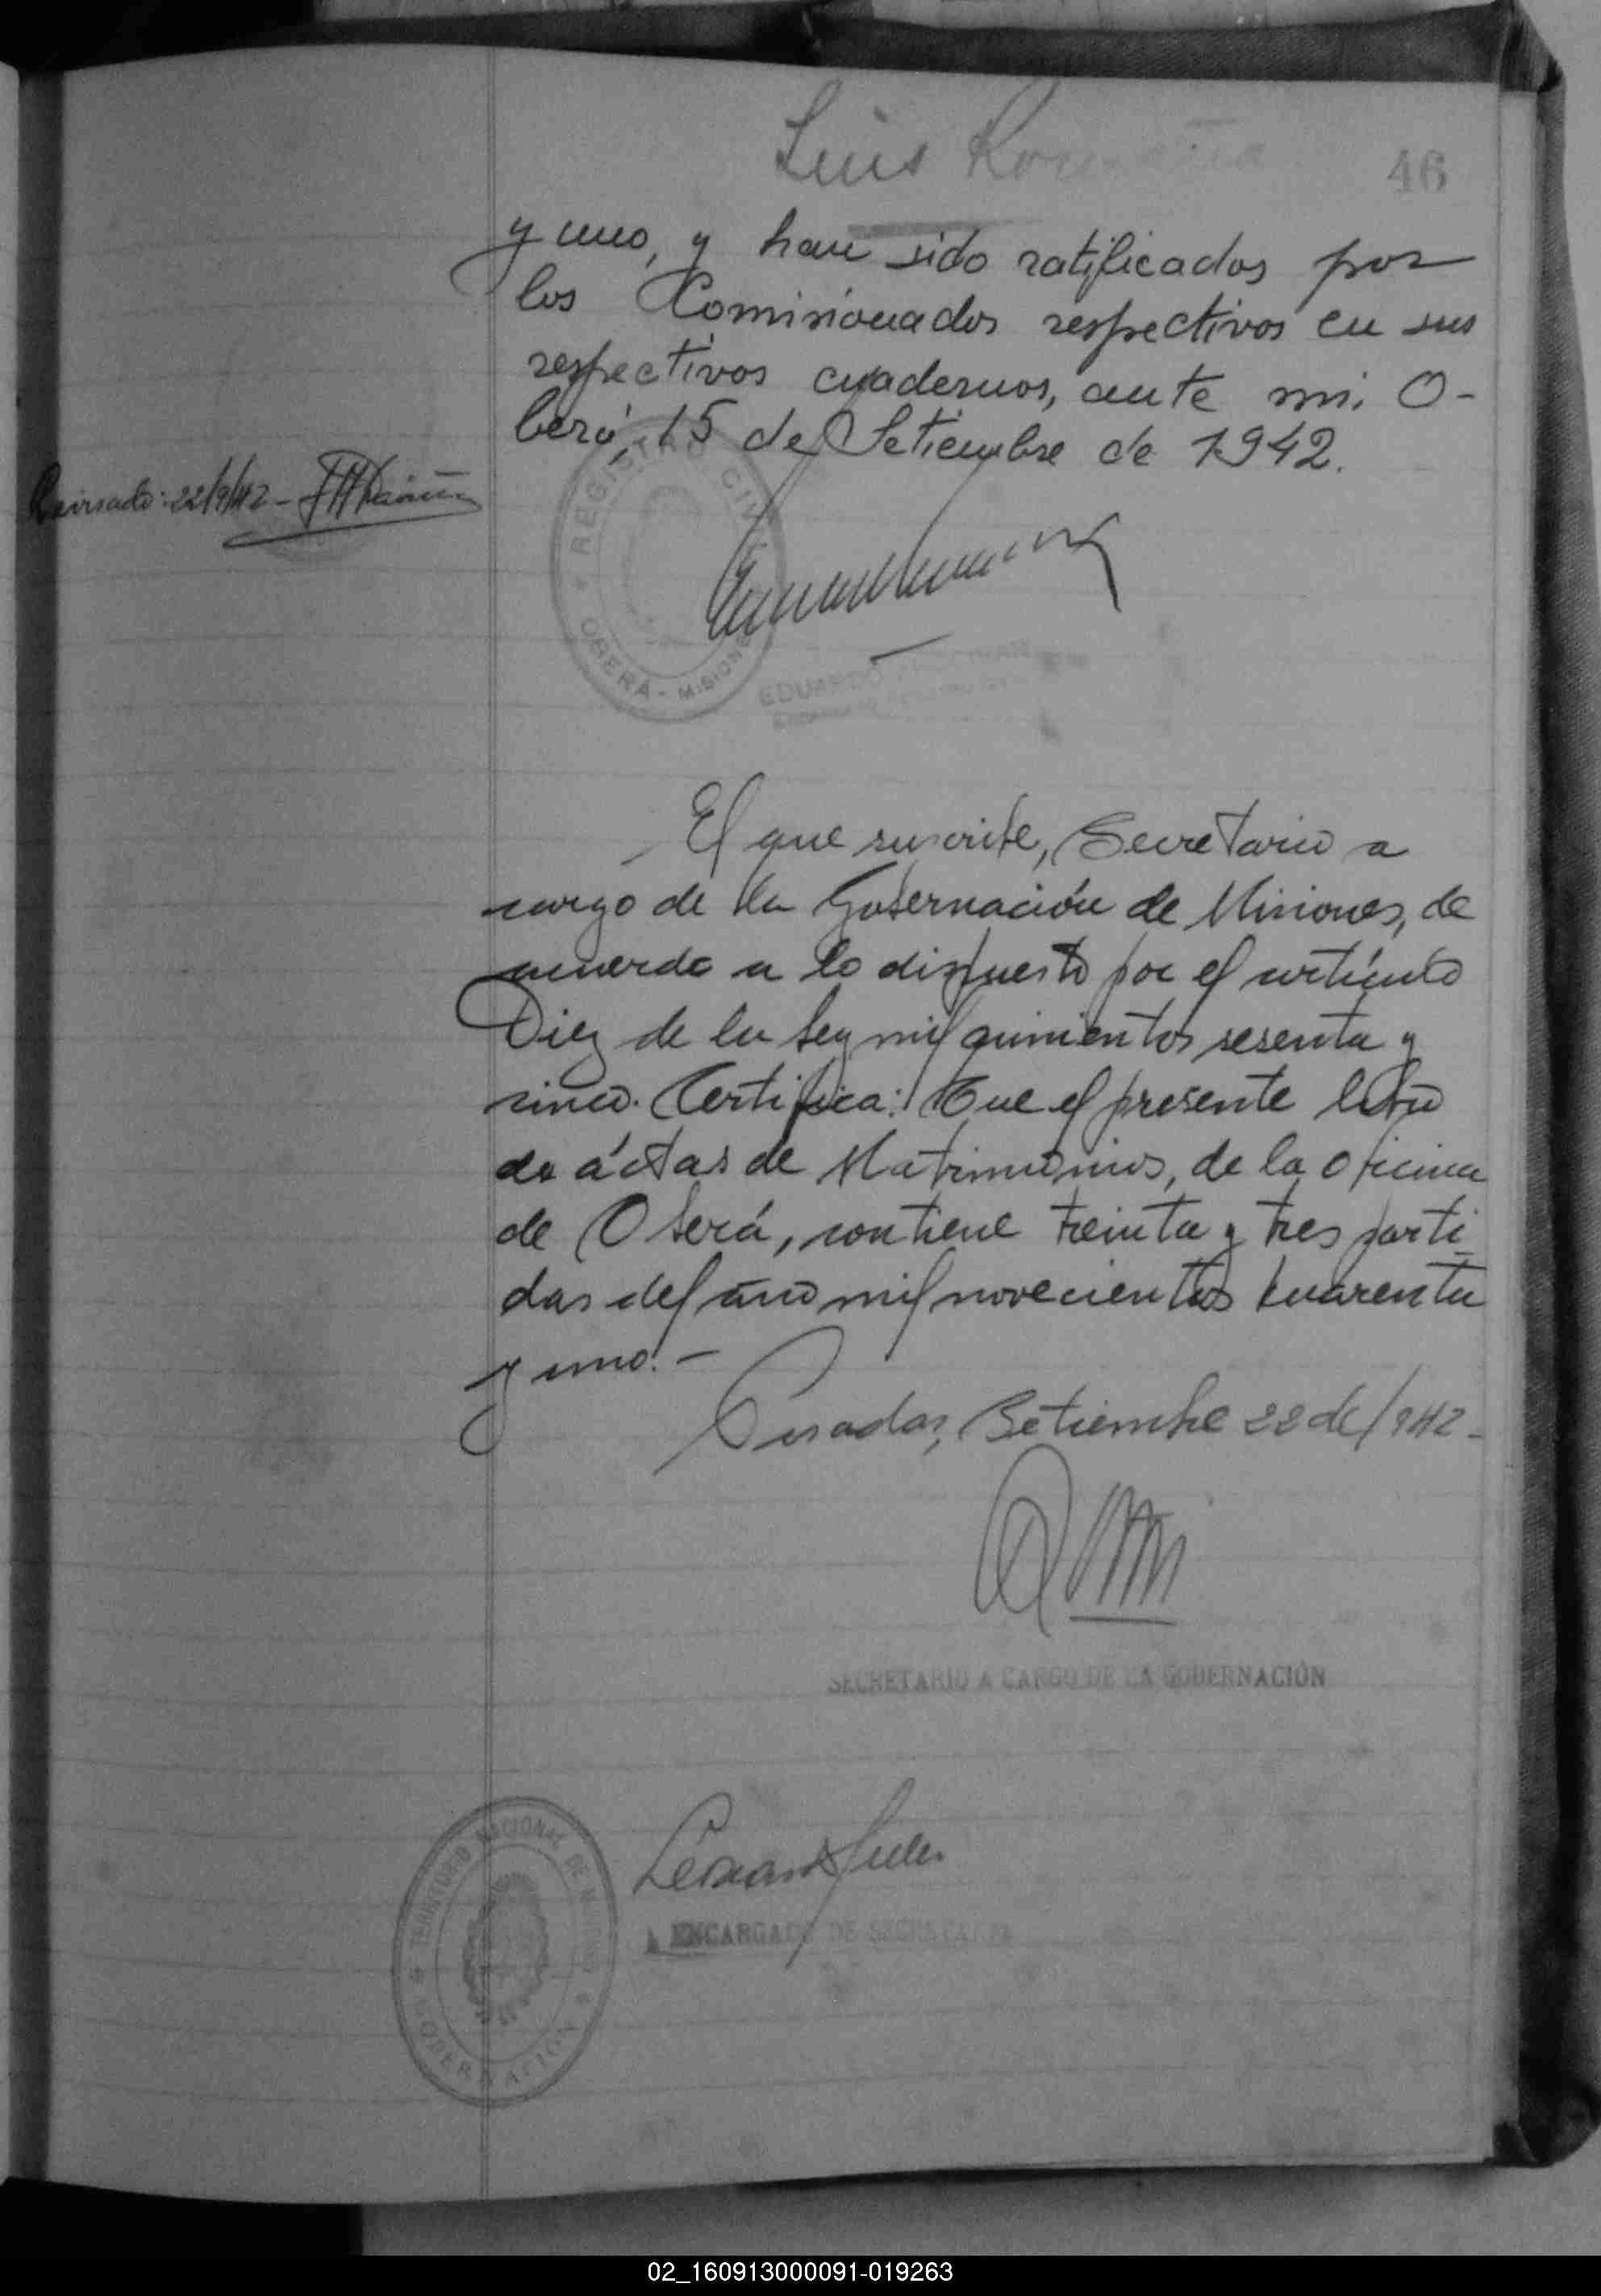 Luis
46
y uno, y han sido ratificados por
los Comisionados respectivos en sus
respectivos cuadernos, ante mi. O-
berá, 15 de Setiembre de 1942.
Revisado: 22/9/42 -
REGISTRO CIVIL
OBERÁ - MISIONES
EDUARDO
El que suscribe, Secretario a
cargo de la Gobernación de Misiones, de
acuerdo a lo dispuesto por el artículo
Diez de la ley mil quinientos sesenta y
cinco. Certifica: Que el presente libro
de áctas de Matrimonios, de la oficina
de Oberá, contiene treinta y tres parti
das del año mil novecientos cuarenta
y uno. -
Posadas, Setiembre 22 de 1942 -
SECRETARIO A CARGO DE LA GOBERNACIÓN
TERRITORIO NACIONAL DE MISIONES
GOBERNACION
ENCARGADO DE SECRETARIA
02_160913000091-019263